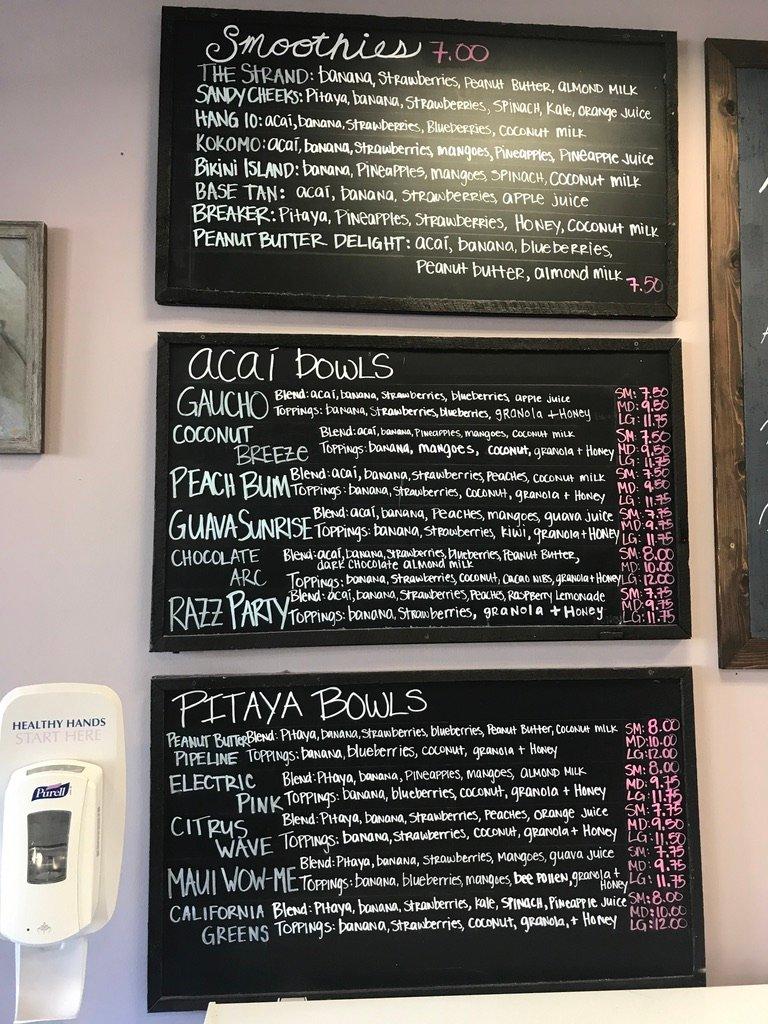 Smoothies 7.00
THE STRAND: banana, strawberries, peanut butter, almond milk
SANDY CHEEKS: Pitaya, banana, strawberries, spinach, kale, orange juice
HANG 10: acaí, banana, strawberries, blueberries, coconut milk
KOKOMO: acaí, banana, strawberries, mangoes, pineapples, pineapple juice
BIKINI ISLAND: banana, pineapples, mangoes, spinach, coconut milk
BASE TAN: acaí, banana, strawberries, apple juice
BREAKER: Pitaya, pineapples, strawberries, honey, coconut milk
PEANUT BUTTER DELIGHT: acaí, banana, blueberries,
peanut butter, almond milk 7.50
acaí bowls
GAUCHO Blend: acaí, banana, strawberries, blueberries, apple juice SM: 7.50
Toppings: banana, strawberries, blueberries, granola + honey MD: 9.50
LG: 11.75
COCONUT Blend: acaí, banana, pineapples, mangoes, coconut milk SM: 7.50
BREEZE Toppings: banana, mangoes, coconut, granola + honey MD: 9.50
LG: 11.75
PEACH BUM Blend: acaí, banana, strawberries, peaches, coconut milk SM: 7.50
Toppings: banana, strawberries, coconut, granola + honey MD: 9.50
LG: 11.75
GUAVA SUNRISE Blend: acaí, banana, peaches, mangoes, guava juice SM: 7.75
Toppings: banana, strawberries, kiwi, granola + honey MD: 9.75
LG: 11.75
CHOCOLATE Blend: acaí, banana, strawberries, blueberries, peanut butter, SM: 8.00
dark chocolate almond milk MD: 10.00
ARC Toppings: banana, strawberries, coconut, cacao nibs, granola + honey LG: 12.00
RAZZ PARTY Blend: acaí, banana, strawberries, peaches, raspberry lemonade SM: 7.75
Toppings: banana, strawberries, granola + honey MD: 9.75
LG: 11.75
PITAYA BOWLS
PEANUT BUTTER Blend: Pitaya, banana, strawberries, blueberries, peanut butter, coconut milk SM: 8.00
PIPELINE Toppings: banana, blueberries, coconut, granola + honey MD: 10.00
LG: 12.00
ELECTRIC Blend: Pitaya, banana, pineapples, mangoes, almond milk SM: 8.00
PINK Toppings: banana, blueberries, coconut, granola + honey MD: 9.75
LG: 11.75
CITRUS Blend: Pitaya, banana, strawberries, peaches, orange juice SM: 7.75
WAVE Toppings: banana, strawberries, coconut, granola + honey MD: 9.50
LG: 11.50
MAUI WOW-ME Blend: Pitaya, banana, strawberries, mangoes, guava juice SM: 7.75
Toppings: banana, blueberries, mangoes, bee pollen, granola + MD: 9.75
honey LG: 11.75
CALIFORNIA Blend: Pitaya, banana, strawberries, kale, spinach, pineapple juice SM: 8.00
GREENS Toppings: banana, strawberries, coconut, granola, + honey MD: 10.00
LG: 12.00
HEALTHY HANDS
START HERE
Purell